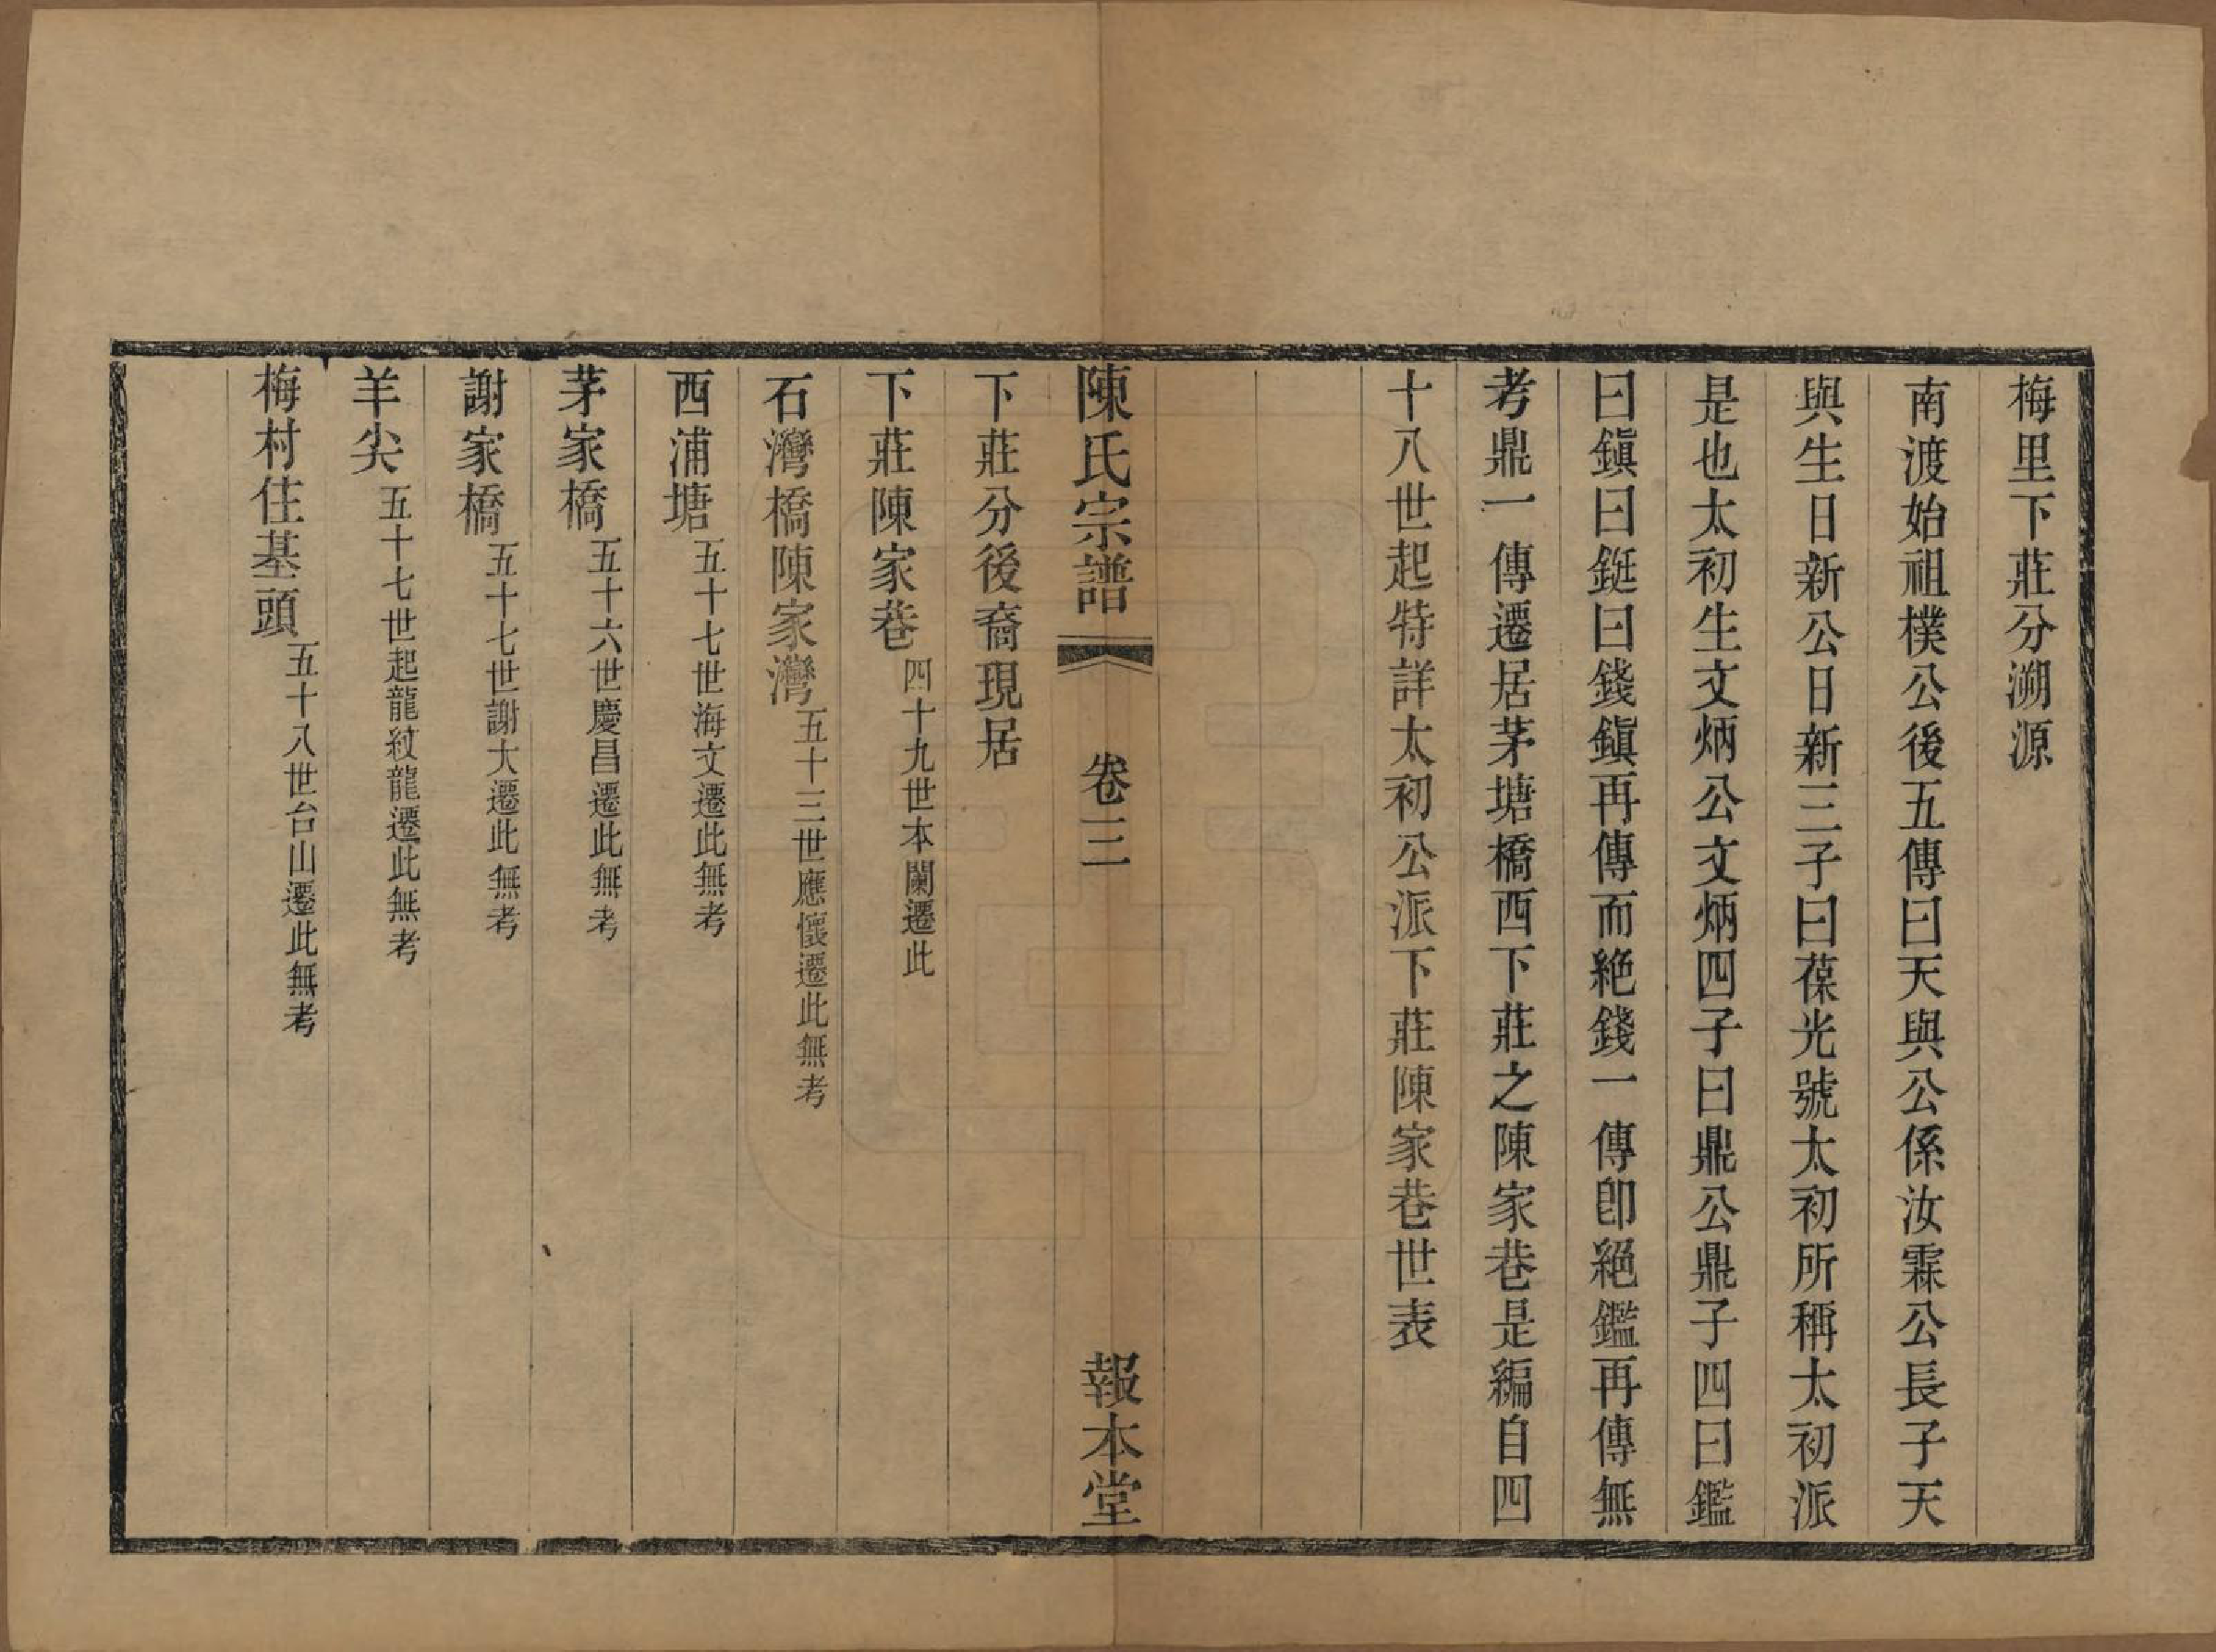 梅里下莊分溯源
南渡始祖樸公後五傳曰天與公係汝霖公長子天
與生日新公日新三子曰葆光號太初所稱太初派
是也太初生文炳公文炳四子曰鼎公鼎子四曰鑑
曰鎭曰鋌曰錢鎭再傳而絶錢一傳卽絕鑑再傳無
考鼎一傳遷居茅塘橋西下莊之陳家巷是編自四
十八世起特詳太初公派下莊陳家巷世表
陳氏宗譜 卷三 報本堂
下莊分後裔現居
下莊陳家巷 四十九世本闌遷此
石灣橋陳家灣 五十三世應懷遷此無考
西浦塘 五十七世海文遷此無考
茅家橋 五十六世慶昌遷此無考
謝家橋 五十七世謝大遷此無考
羊尖 五十七世起龍紋龍遷此無考
梅村住基頭 五十八世台山遷此無考